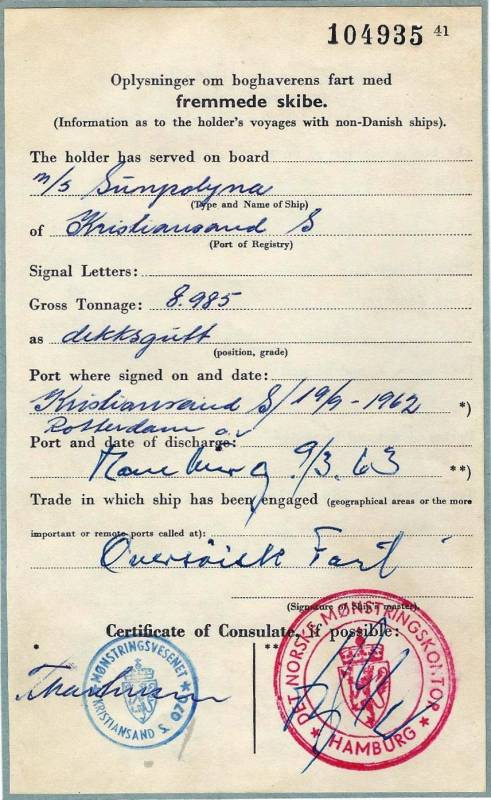 104935 41
Oplysninger om boghaverens fart med
fremmede skibe.
(Information as to the holder's voyages with non-Danish ships).
The holder has served on board
m/s Sunpolyna
(Type and Name of Ship)
of Kristiansand S
(Port of Registry)
Signal Letters:
Gross Tonnage: 8.985
as dekksgutt
(position, grade)
Port where signed on and date:
Kristiansand S/ 19/9-1962 *)
Rotterdam
Port and date of discharge:
Hamburg 9/3.63 **)
Trade in which ship has been engaged (geographical areas or the more
important or remote ports called at):
Oversöisk Fart
(Signature of Ship's master).
Certificate of Consulate, if possible:
* **
MØNSTRINGSVESENET
KRISTIANSAND S.
020
DET NORSKE MØNSTRINGSKONTOR
* HAMBURG *